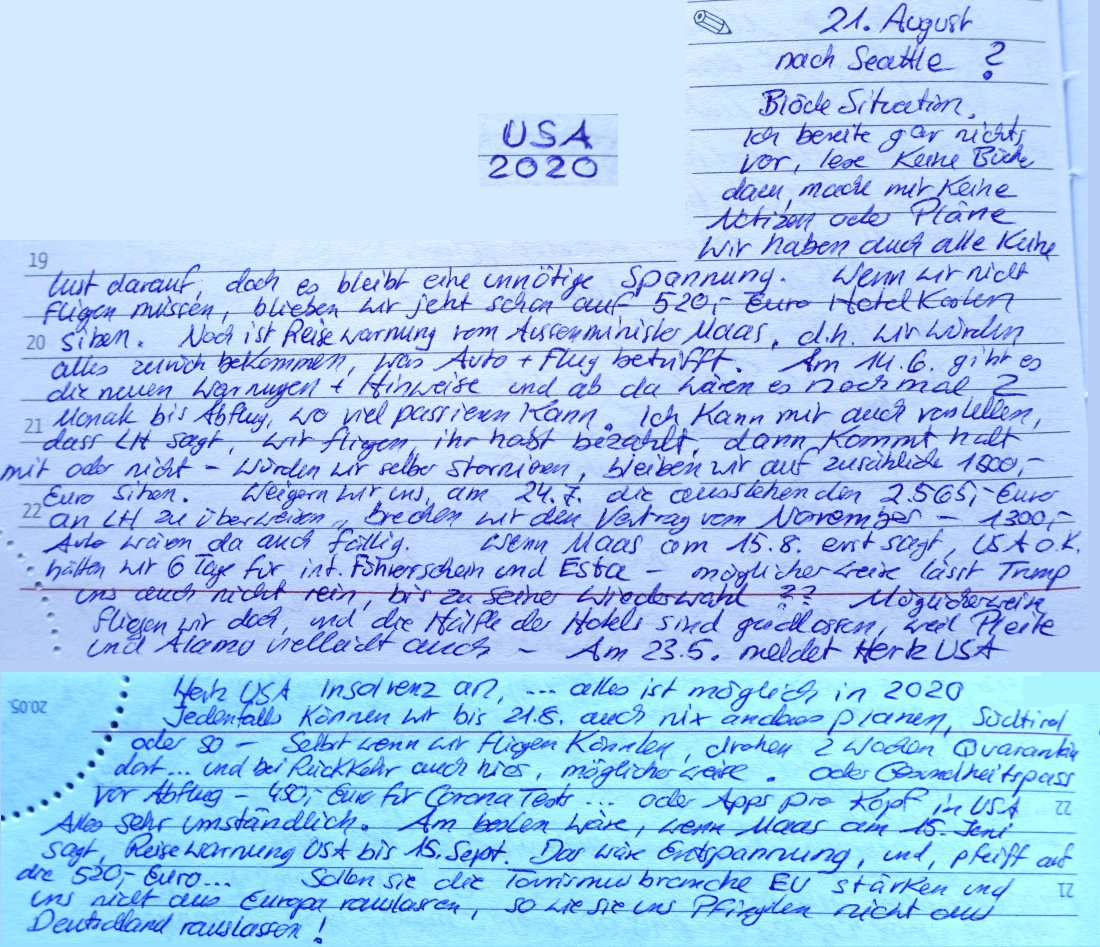 USA
2020
21. August
nach Seattle ?
Blöde Situation.
Ich bereite gar nichts
vor, lese keine Bücher
dazu, mache mir keine
Notizen oder Pläne
Wir haben auch alle keine
19
Lust darauf, doch es bleibt eine unnötige Spannung. Wenn wir nicht
fliegen müssen, blieben wir jetzt schon auf 520,- Euro Hotelkosten
20 sitzen. Noch ist Reisewarnung vom Aussenminister Maas, d.h. wir würden
alles zurück bekommen, was Auto + Flug betrifft. Am 14.6. gibt es
die neuen Warnungen + Hinweise und ab da wären es nochmal 2
21 Monate bis Abflug, wo viel passieren kann. Ich kann mir auch vorstellen,
dass LH sagt, wir fliegen, ihr habt bezahlt, dann kommt halt
mit oder nicht - würden wir selber stornieren, bleiben wir auf zusätzliche 1800,-
Euro sitzen. Weigern wir uns, am 24.7. die ausstehenden 2.565,- Euro
22 an LH zu überweisen, brechen wir den Vertrag vom November - 1300,-
Auto wären da auch fällig. Wenn Maas am 15.8. erst sagt, USA o.k.
hätten wir 6 Tage für int. Führerschein und Esta - möglicherweise lässt Trump
uns auch nicht rein, bis zu seiner Wiederwahl ?? Möglicherweise
fliegen wir doch, und die Hälfte der Hotels sind geschlossen, weil Pleite
und Alamo vielleicht auch - Am 23.5. meldet Hertz USA
20.05
Hertz USA Insolvenz an, ... alles ist möglich in 2020
Jedenfalls können wir bis 21.8. auch nix anderes planen, Südtirol
oder so - Selbst wenn wir fliegen könnten, drohen 2 Wochen Quarantäne
dort... und bei Rückkehr auch hier, möglicherweise. oder Gesundheitspass
vor Abflug - 480,- Euro für Corona Tests ... oder Apps pro Kopf in USA
22
Alles sehr umständlich. Am besten wäre, wenn Maas am 15. Juni
sagt, Reisewarnung USA bis 15. Sept. Das wäre Entspannung, und, pfeiff auf
die 520,- Euro... Sollen sie die Tourismusbranche EU stärken und
21
uns nicht aus Europa rauslassen, so wie sie uns Pfingsten nicht aus
Deutschland rauslassen!